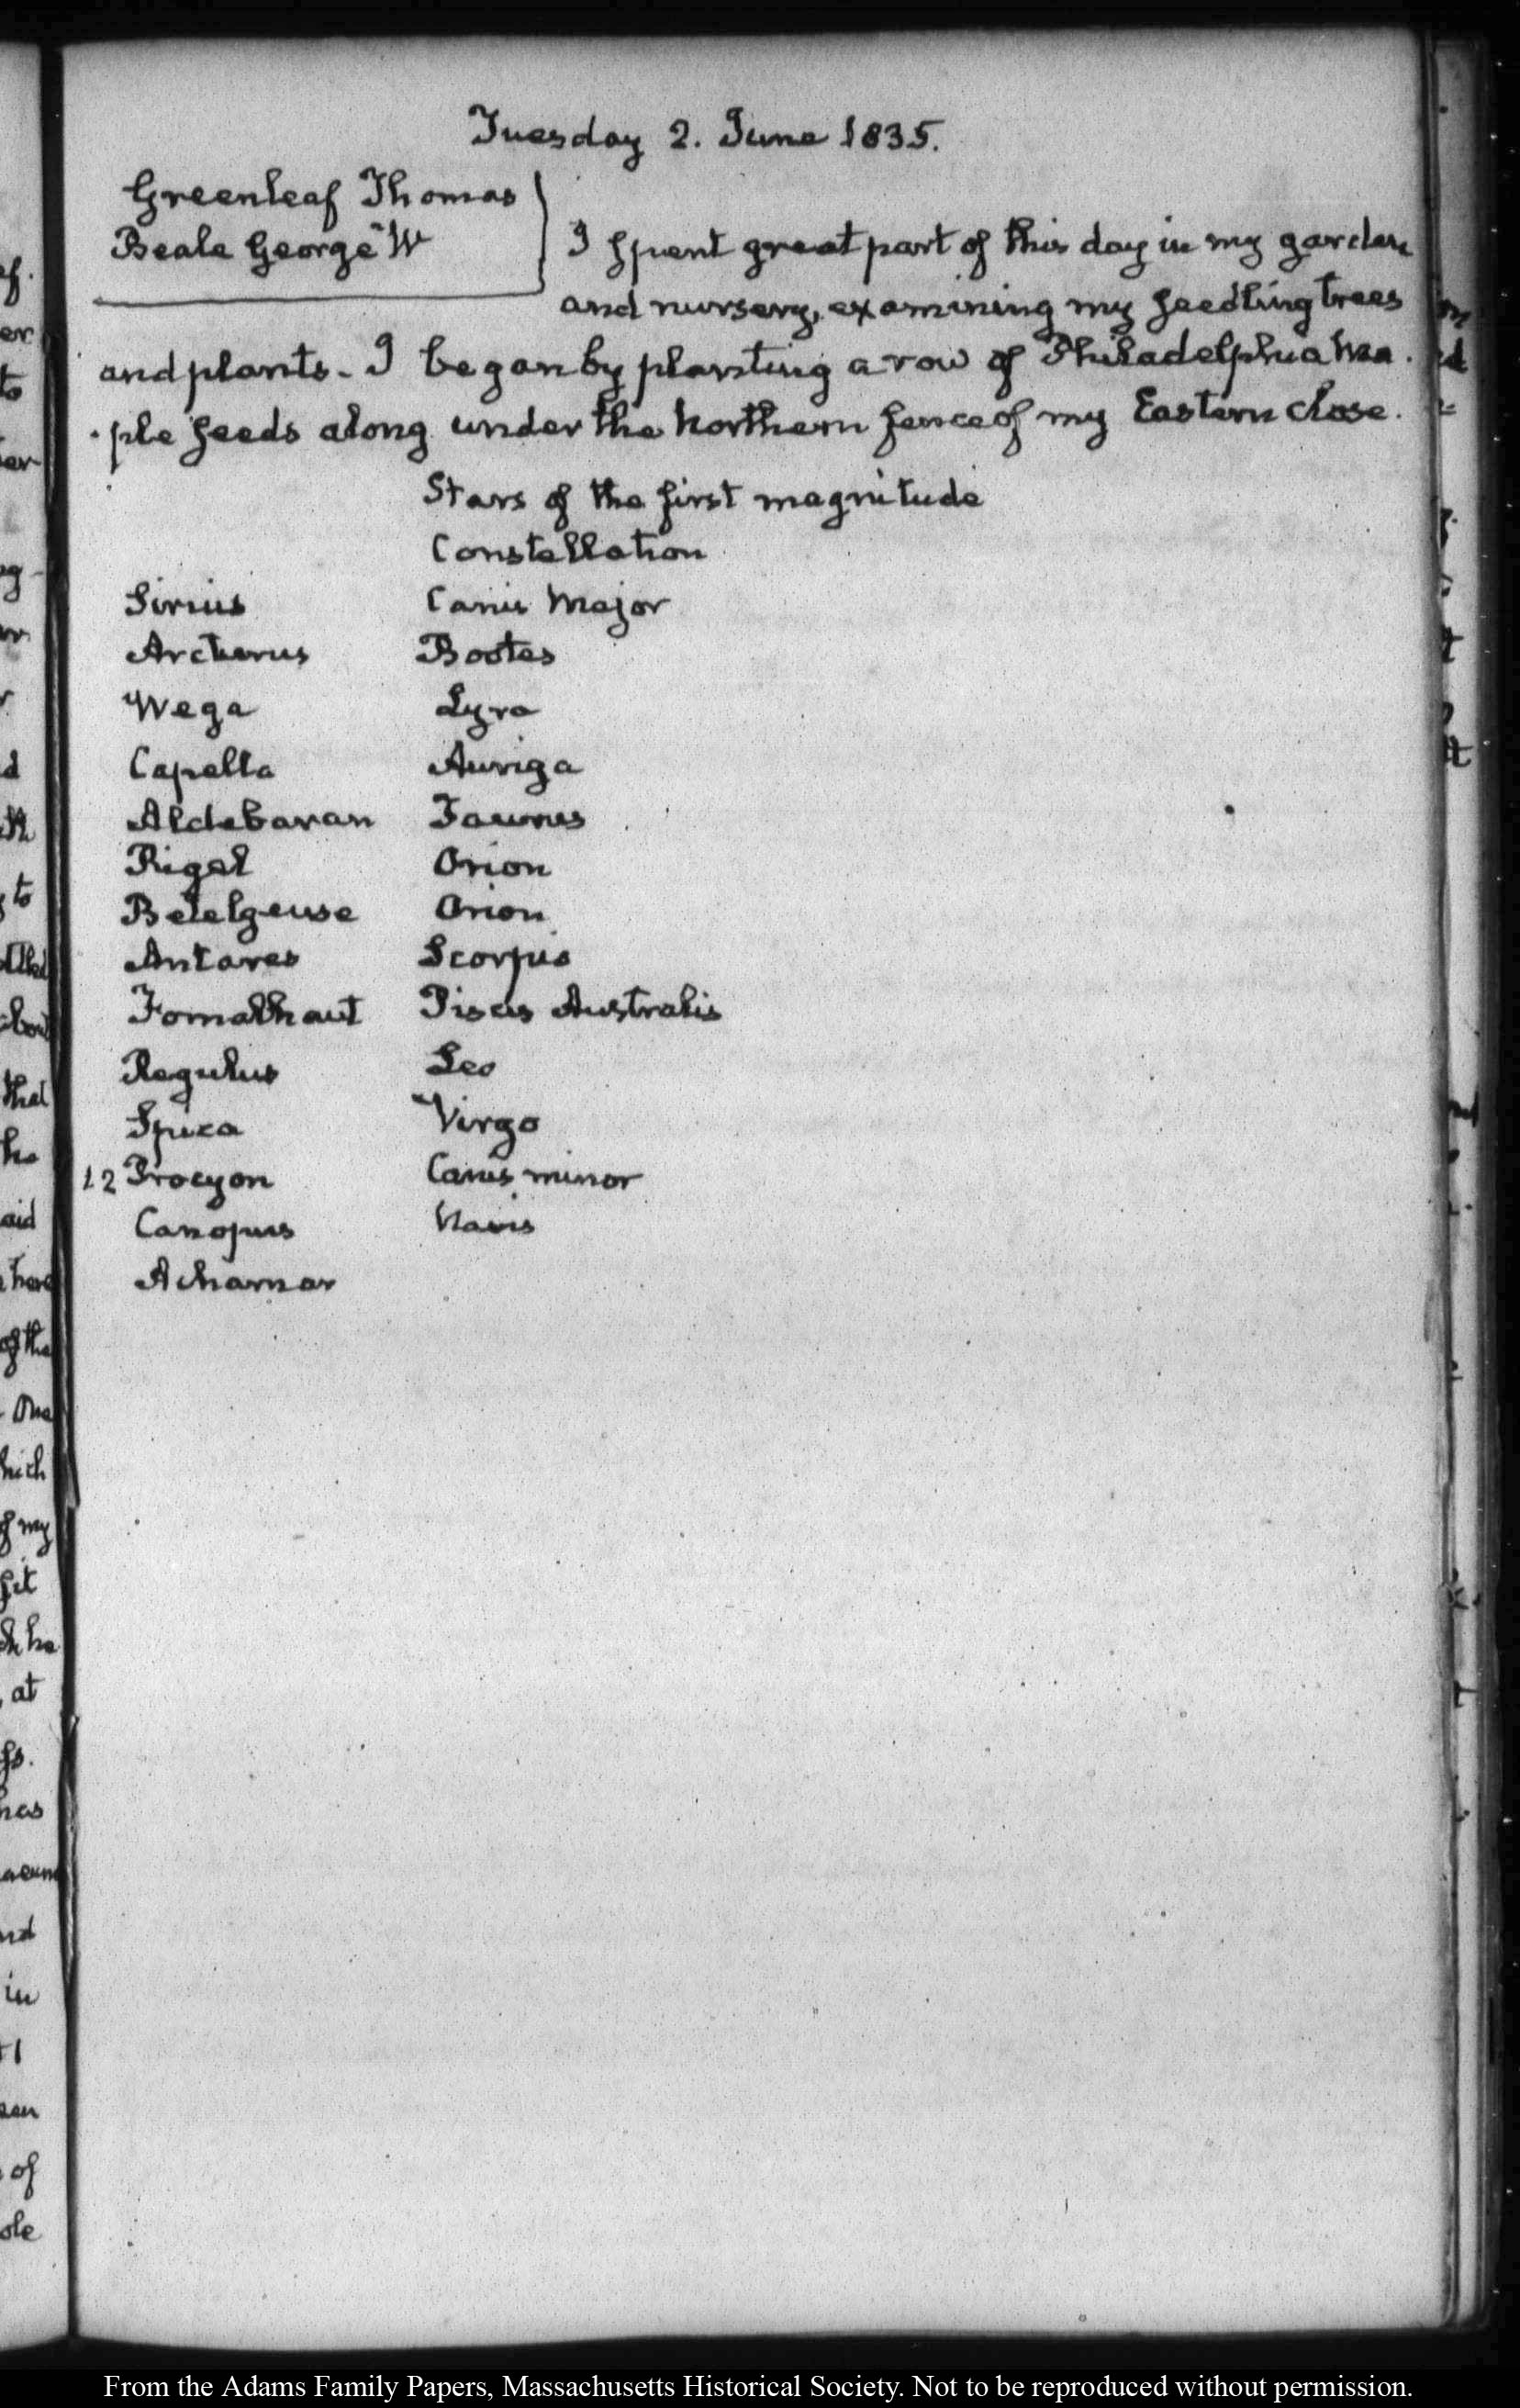 Tuesday 2. June 1835.
Greenleaf Thomas
Beale George W
I spent great part of this day in my garden
and nursery, examining my seedling trees
and plants. I began by planting a row of Philadelphia Ma
ple seeds along under the Northern fence of my Eastern close.
Stars of the first magnitude
Constellation
Sirius Canis Major
Arcturus Bootes
Wega Lyra
Capella Auriga
Aldebaran Taurus
Rigel Orion
Betelgeuse Orion
Antares Scorpio
Fomalhaut Piscis Australis
Regulus Leo
Spica Virgo
12 Procyon Canis minor
Canopus Navis
Acharnar
From the Adams Family Papers, Massachusetts Historical Society. Not to be reproduced without permission.